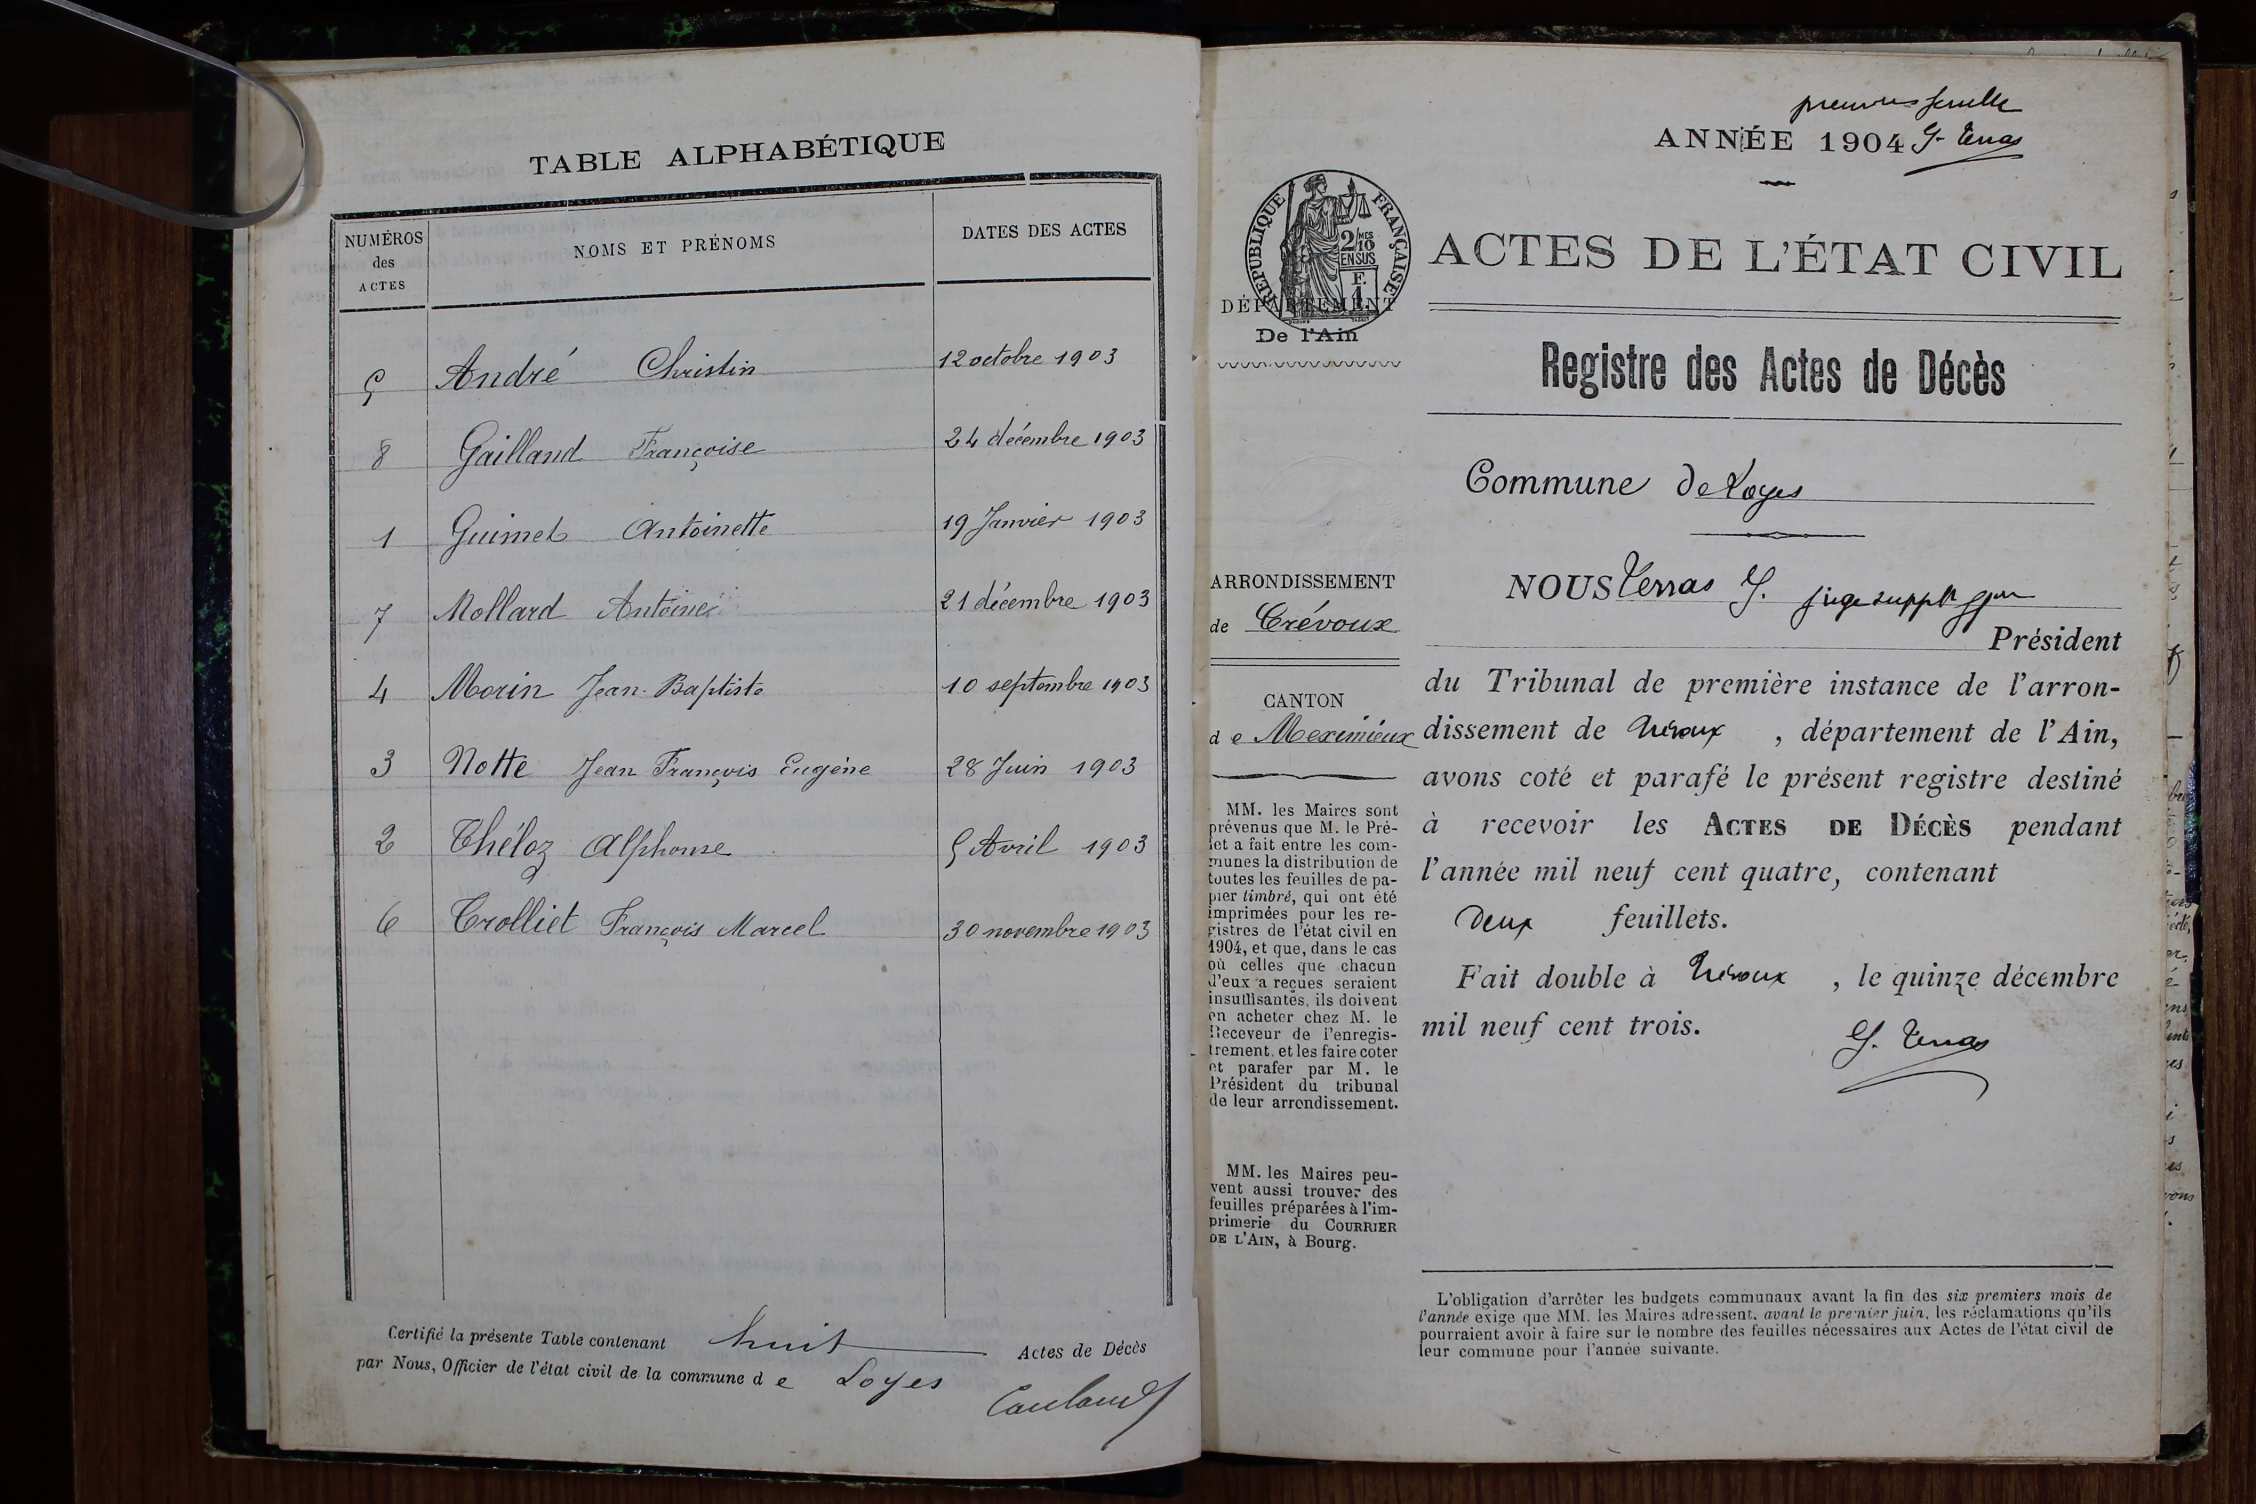 TABLE ALPHABÉTIQUE
NUMÉROS
des
ACTES
NOMS ET PRÉNOMS
DATES DES ACTES
5 André Christin 12 octobre 1903
8 Gailland Françoise 24 décembre 1903
1 Guimet Antoinette 19 Janvier 1903
7 Mollard Antoine 21 décembre 1903
4 Morin Jean-Baptiste 10 septembre 1903
3 Notte Jean François Eugène 28 Juin 1903
2 Théloz Alphonse 5 Avril 1903
6 Trolliet François Marcel 30 novembre 1903
Certifié la présente Table contenant huit Actes de Décès
par Nous, Officier de l'état civil de la commune de Loyes
première feuille
ANNÉE 1904 G. Terras
RÉPUBLIQUE FRANÇAISE
2/10 MES
EN SUS
F.
1
DÉPARTEMENT
De l'Ain
ARRONDISSEMENT
de Trévoux
CANTON
de Meximieux
MM. les Maires sont
prévenus que M. le Pré-
fet a fait entre les com-
munes la distribution de
toutes les feuilles de pa-
pier timbré, qui ont été
imprimées pour les re-
gistres de l'état civil en
1904, et que, dans le cas
où celles que chacun
d'eux a reçues seraient
insuffisantes, ils doivent
en acheter chez M. le
Receveur de l'enregis-
trement, et les faire coter
et parafer par M. le
Président du tribunal
de leur arrondissement.
MM. les Maires peu-
vent aussi trouver des
feuilles préparées à l'im-
primerie du COURRIER
DE L'AIN, à Bourg.
ACTES DE L'ÉTAT CIVIL
Registre des Actes de Décès
Commune de Loyes
NOUS Terras G. juge suppt
Président
du Tribunal de première instance de l'arron-
dissement de Trévoux , département de l'Ain,
avons coté et parafé le présent registre destiné
à recevoir les ACTES DE DÉCÈS pendant
l'année mil neuf cent quatre, contenant
Deux feuillets.
Fait double à Trévoux , le quinze décembre
mil neuf cent trois.
G. Terras
L'obligation d'arrêter les budgets communaux avant la fin des six premiers mois de
l'année exige que MM. les Maires adressent, avant le premier juin, les réclamations qu'ils
pourraient avoir à faire sur le nombre des feuilles nécessaires aux Actes de l'état civil de
leur commune pour l'année suivante.